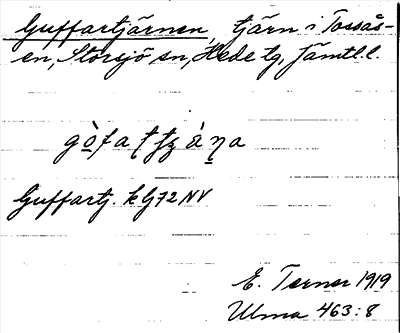 Guffartjärnen, tjärn i Tossås-
en, Storsjö sn, Hede tg, Jämtl.l.
Guffartj. kG72NV
E. Terner 1919
Ulma 463:8